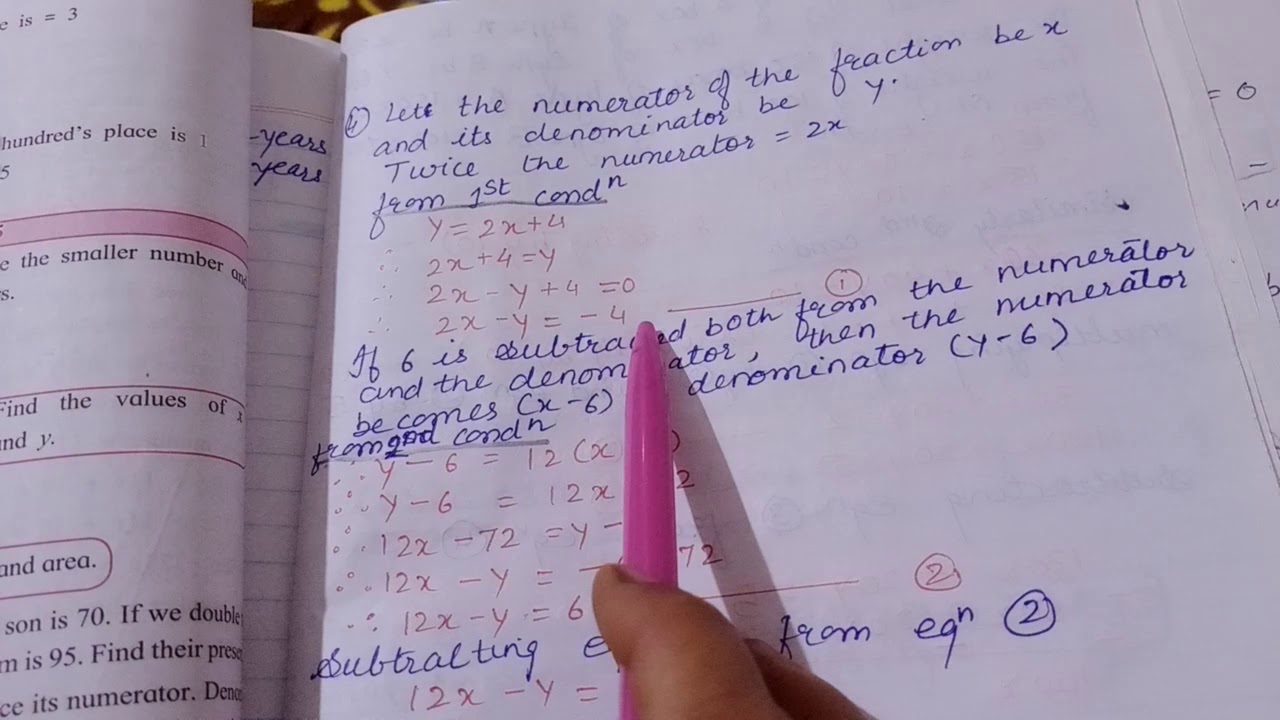 e is = 3
hundred's place is 1
5
e the smaller number and
s.
Find the values of x
nd y.
and area.
son is 70. If we double
m is 95. Find their prese
ce its numerator. Deno
-years
years
④ Let the numerator of the fraction be x
and its denominator be y.
Twice the numerator = 2x
from 1st condn
y = 2x+4
∴ 2x+4=y
∴ 2x-y+4=0
∴ 2x-y = -4 ①
If 6 is subtraced both from the numerator
and the denominator, then the numerator
becomes (x-6) denominator (y-6)
from 2nd condn
∴ y-6 = 12(x )
∴ y-6 = 12x 2
∴ 12x-72 = y-
∴ 12x-y = 72
∴ 12x-y = 6 ②
Subtralting from eqn ②
12x-y =
= 0